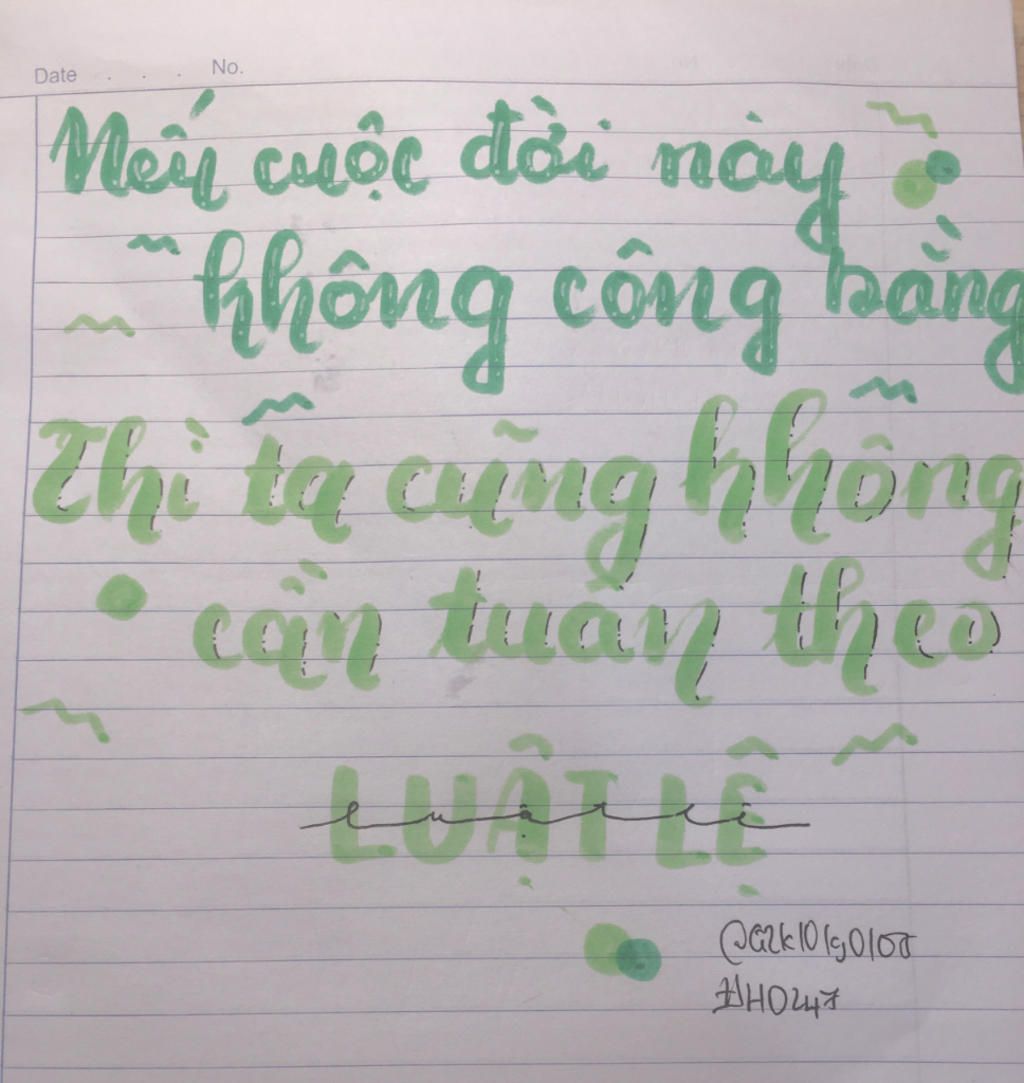 Date . . . No.
Nếu cuộc đời này
không công bằng
Thì ta cũng không
cần tuân theo
LUẬT LỆ
luật lệ